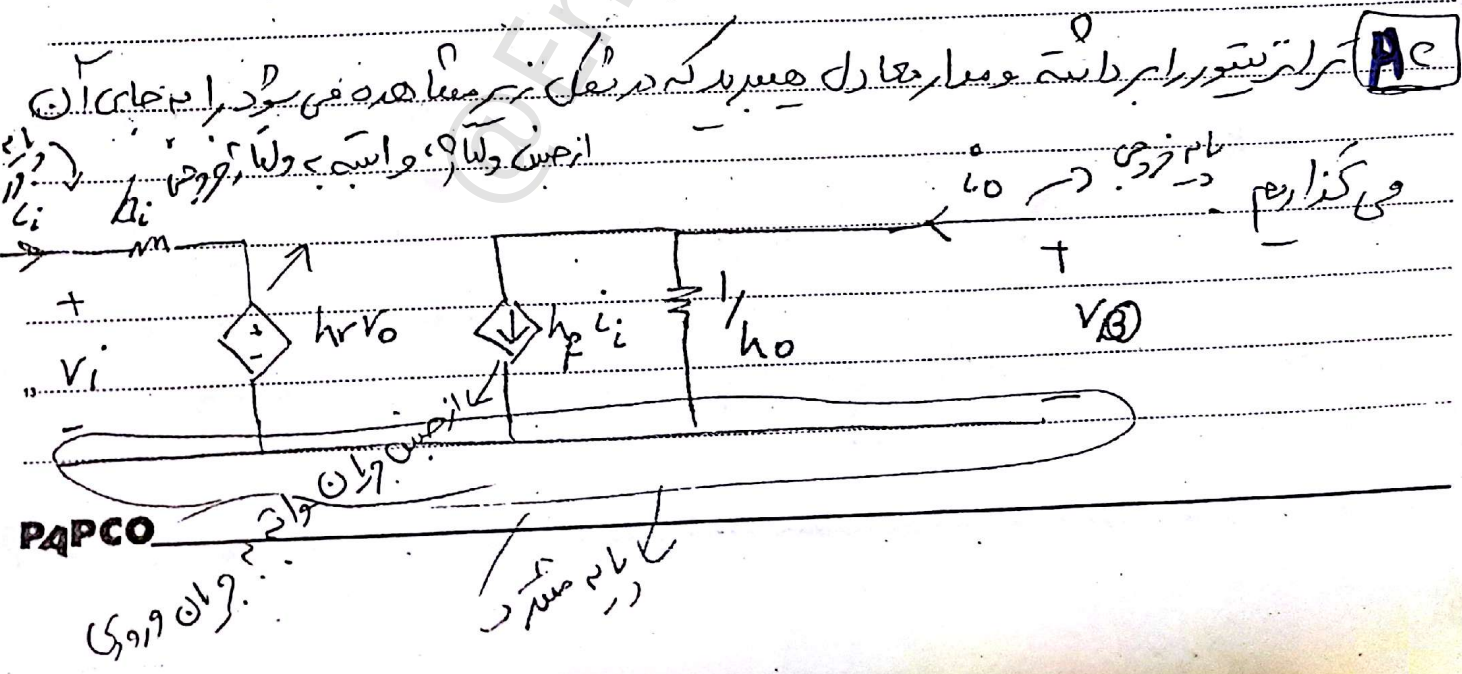 AC ترانزیستور را برداشته و مدار معادل هیبرید که در شکل زیر مشاهده می شود را به جای آن
می گذاریم.
از جنس ولتاژ، وابسته به ولتاژ خروجی
جریان در پایه خروجی
ii hi
io
+ +
Vi hrvo hf ii 1/ho
13
- -
از جنس جریان
جریان ورودی
پایه مشترک
PAPCO